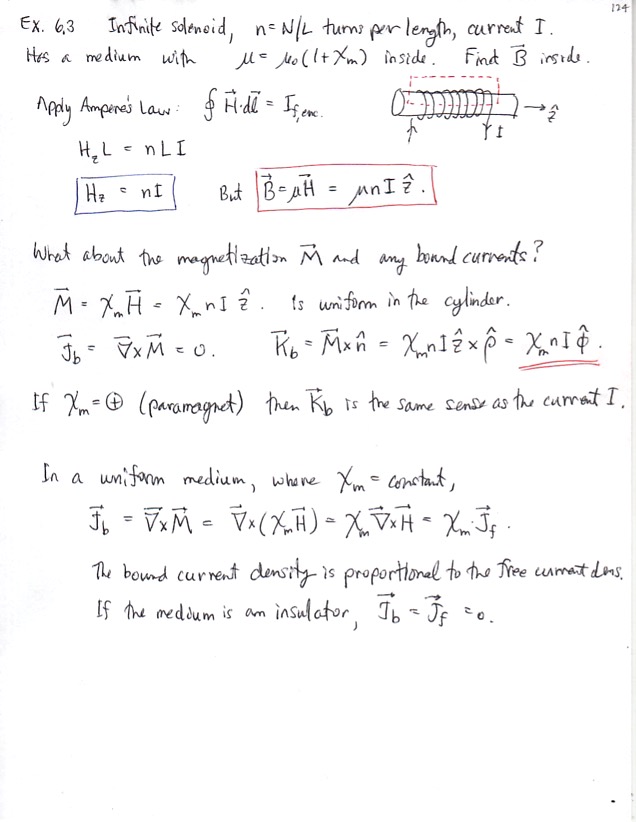 124
Ex. 6.3 Infinite solenoid, n = N/L turns per length, current I.
Has a medium with μ = μ₀(1+χₘ) inside. Find B⃗ inside.
Apply Ampere's Law: ∮ H⃗·dl⃗ = I_f,enc.
ẑ
I
H_z L = nLI
H_z = nI But B⃗ = μH⃗ = μnI ẑ.
What about the magnetization M⃗ and any bound currents?
M⃗ = χₘH⃗ = χₘnI ẑ. Is uniform in the cylinder.
J⃗_b = ∇⃗×M⃗ = 0. K⃗_b = M⃗×n̂ = χₘnI ẑ×ρ̂ = χₘnI φ̂.
If χₘ = ⊕ (paramagnet) then K⃗_b is the same sense as the current I.
In a uniform medium, where χₘ = constant,
J⃗_b = ∇⃗×M⃗ = ∇⃗×(χₘH⃗) = χₘ∇⃗×H⃗ = χₘJ⃗_f.
The bound current density is proportional to the free current dens.
If the medium is an insulator, J⃗_b = J⃗_f = 0.